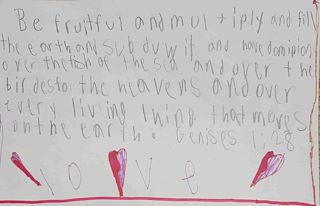 Be fruitful and mul tiply and fill
the earth and subduw it and have dominion
over the fish of the sea and over the
birdesfo the heavens and over
every living thing that moves
on the earth. Genises 1:28
love